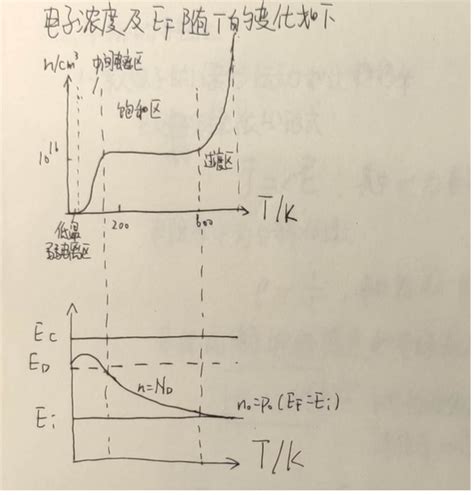 电子浓度及EF随T的变化如下
n/cm³
中间电离区
饱和区
10¹⁶
过渡区
低温
弱电离区
200
600
T/K
Ec
ED
n=ND
Ei
n₀=p₀(EF=Ei)
T/K